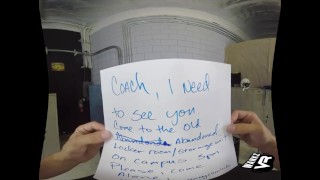 Coach, I Need
to see you.
Come to the old
Abandoned
Locker room/storage
on campus 5pm
Please come
Alone.